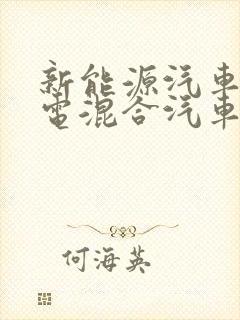 新能源汽車
電混合汽車
何海英